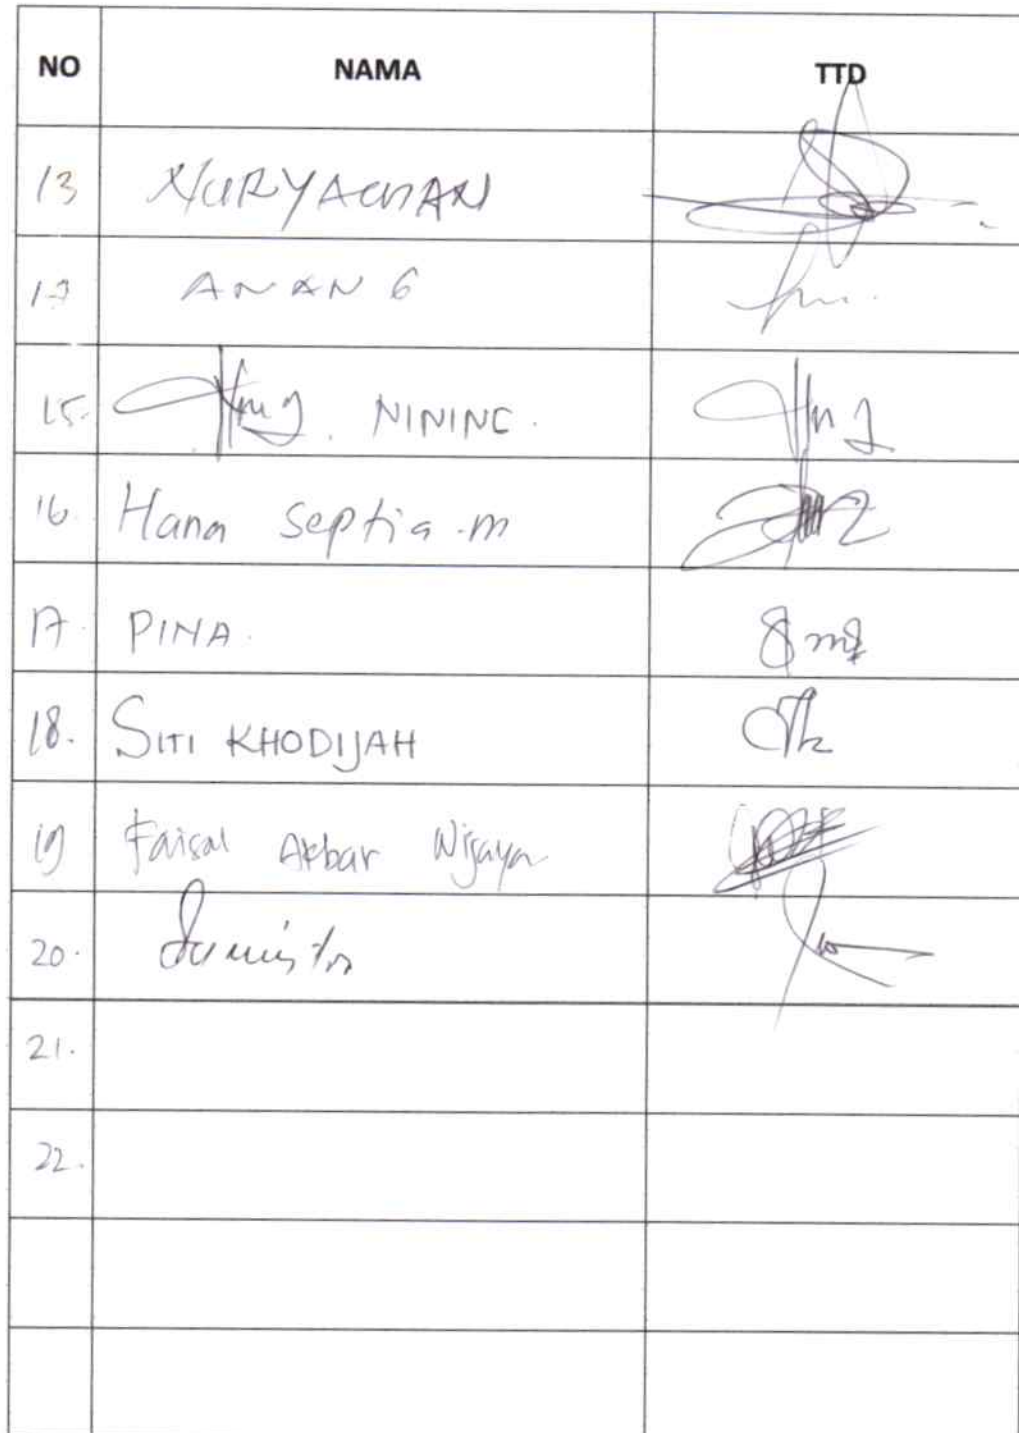 NO NAMA TTD
13 NURYAMAN
ANANG
15. NINING.
16. Hana Septia.m
17. PINA.
18. SITI KHODIJAH
19 Faisal Akbar Wijaya
20.
21.
22.